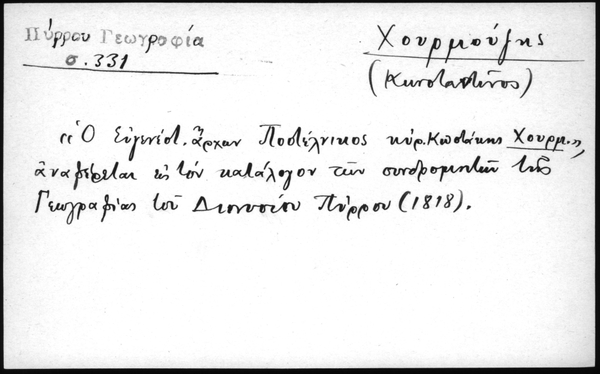 Πύρρου Γεωγραφία
σ. 331
Χουρμούζης
(Κωνσταντῖνος)
«Ὁ Εὐγενέστ. ἄρχων Ποστέλνικος κύρ. Κωστάκης Χουρμ.»,
ἀναφέρεται εἰς τὸν κατάλογον τῶν συνδρομητῶν τῆς
Γεωγραφίας τοῦ Διονυσίου Πύρρου (1818).